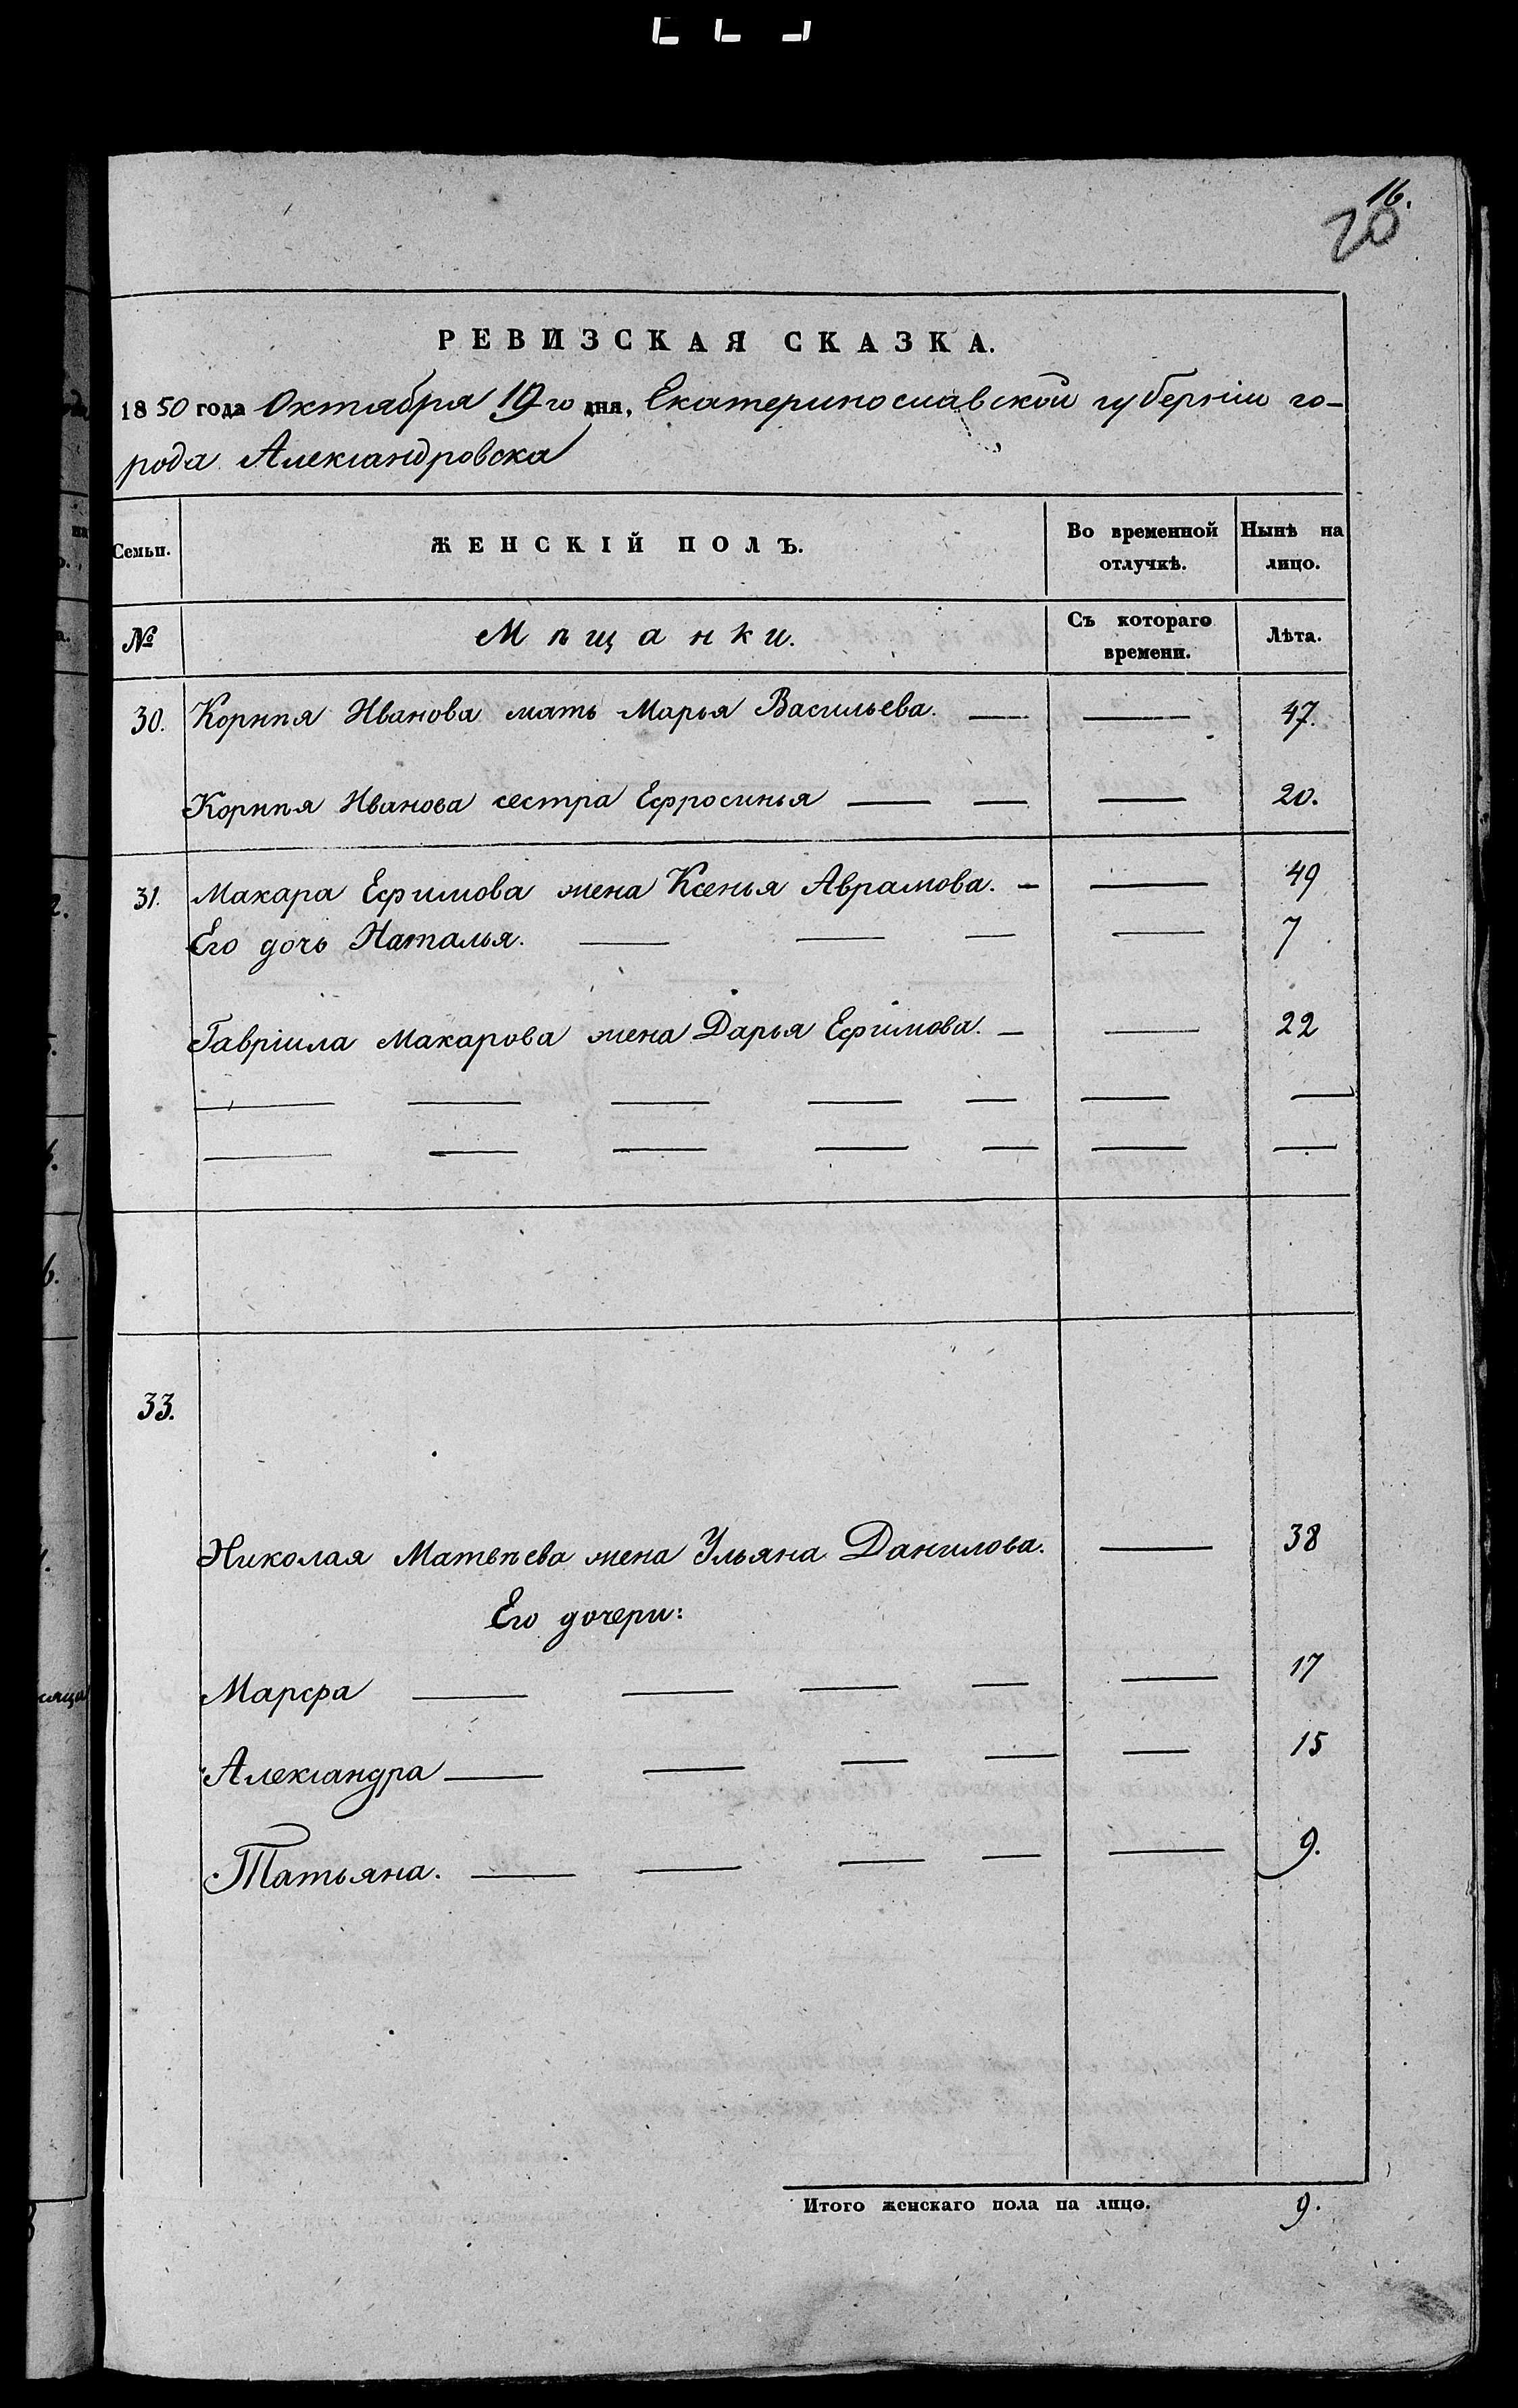 16.
20
РЕВИЗСКАЯ СКАЗКА.
1850 года Октября 19го дня, Екатеринославской губерніи го-
рода Александровска
Семьи. ЖЕНСКІЙ ПОЛЪ. Во временной отлучкѣ. Нынѣ на лицо.
№ Мѣщанки. Съ котораго времени. Лѣта.
30. Корнѣя Иванова мать Марья Васильева. — — 47.
Корнѣя Иванова сестра Ефросинья — — — 20.
31. Макара Ефимова жена Ксенья Аврамова. — — 49
Его дочь Наталья. — — — — 7
Гавріила Макарова жена Дарья Ефимова. — — 22
— — — — — — —
— — — — — — —
33.
Николая Матвѣева жена Ульяна Данилова. — 38
Его дочери:
Марфа — — — — — 17
Александра — — — — — 15
Татьяна. — — — — — 9.
Итого женскаго пола на лицо. 9.